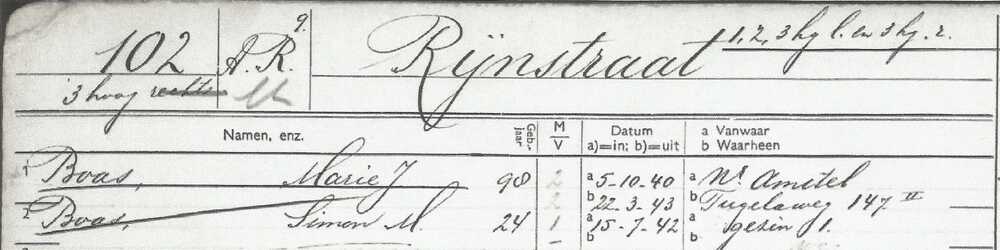 102 A. R. 9. Rijnstraat 1, 2, 3 hg l. en 3 hg. r.
3 hoog rechts
Namen, enz. Geb. jaar M V Datum a)=in; b)=uit a Vanwaar b Waarheen
1 Boas, Marie J 98 2 a 5-10-40 a Nr Amstel
2 b 22-3-43 b Tugelaweg 147 II
2 Boas, Simon M. 24 1 a 15-7-42 a gezin 1.
b b